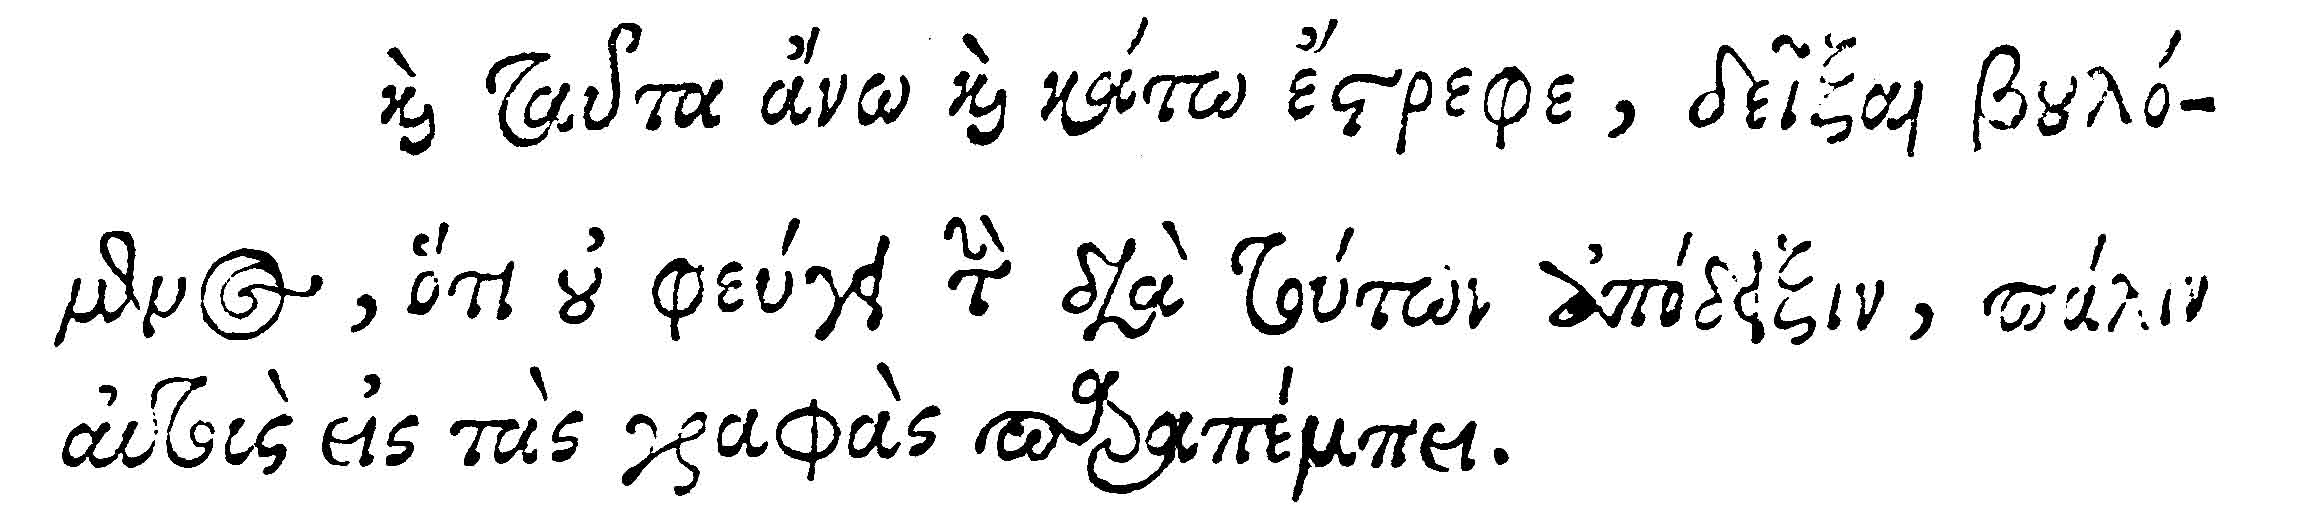 καὶ ταῦτα ἄνω καὶ κάτω ἔστρεφε, δεῖξαι βουλό-
μενος, ὅτι οὐ φεύγει τὴν διὰ τούτων ἀπόδειξιν, πάλιν
αὐτοὺς εἰς τὰς γραφὰς παραπέμπει.